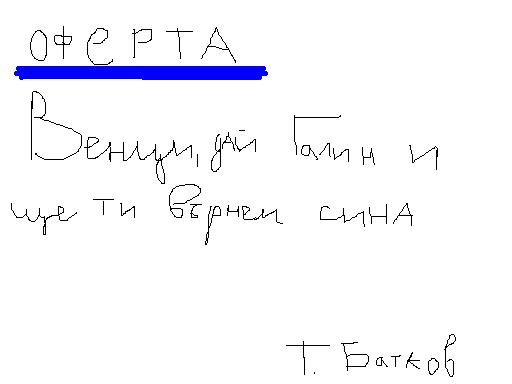 ОФЕРТА
Венци, дай Галин и
ще ти върнем сина
Т. Батков